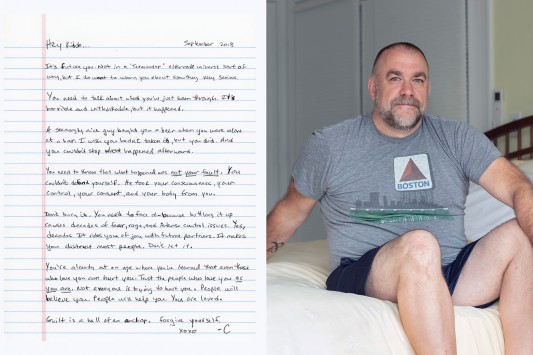 Hey Kiddo...
September 2018
It's future you. Not in a "Terminator" alternate universe sort of
way, but I do want to warn you about something very serious.
You need to talk about what you've just been through. It's
horrible and unthinkable, but it happened.
A seemingly nice guy bought you a beer when you were alone
at a bar. I wish you hadn't taken it, but you did. And
you couldn't stop what happened afterward.
You need to know that what happened was not your fault. You
couldn't defend yourself. He took your consciousness, your
control, your consent, and your body from you.
Don't bury it. You need to face it because bottling it up
causes decades of fear, rage, and intense control issues. Yes,
decades. It robs you of joy with future partners. It makes
you distrust most people. Don't let it.
You're already at an age where you've learned that even those
who love you can hurt you. Trust the people who love you as
you are. Not everyone is trying to hurt you. People will
believe you. People will help you. You are loved.
Guilt is a hell of an . Forgive yourself.
xoxo -C
BOSTON